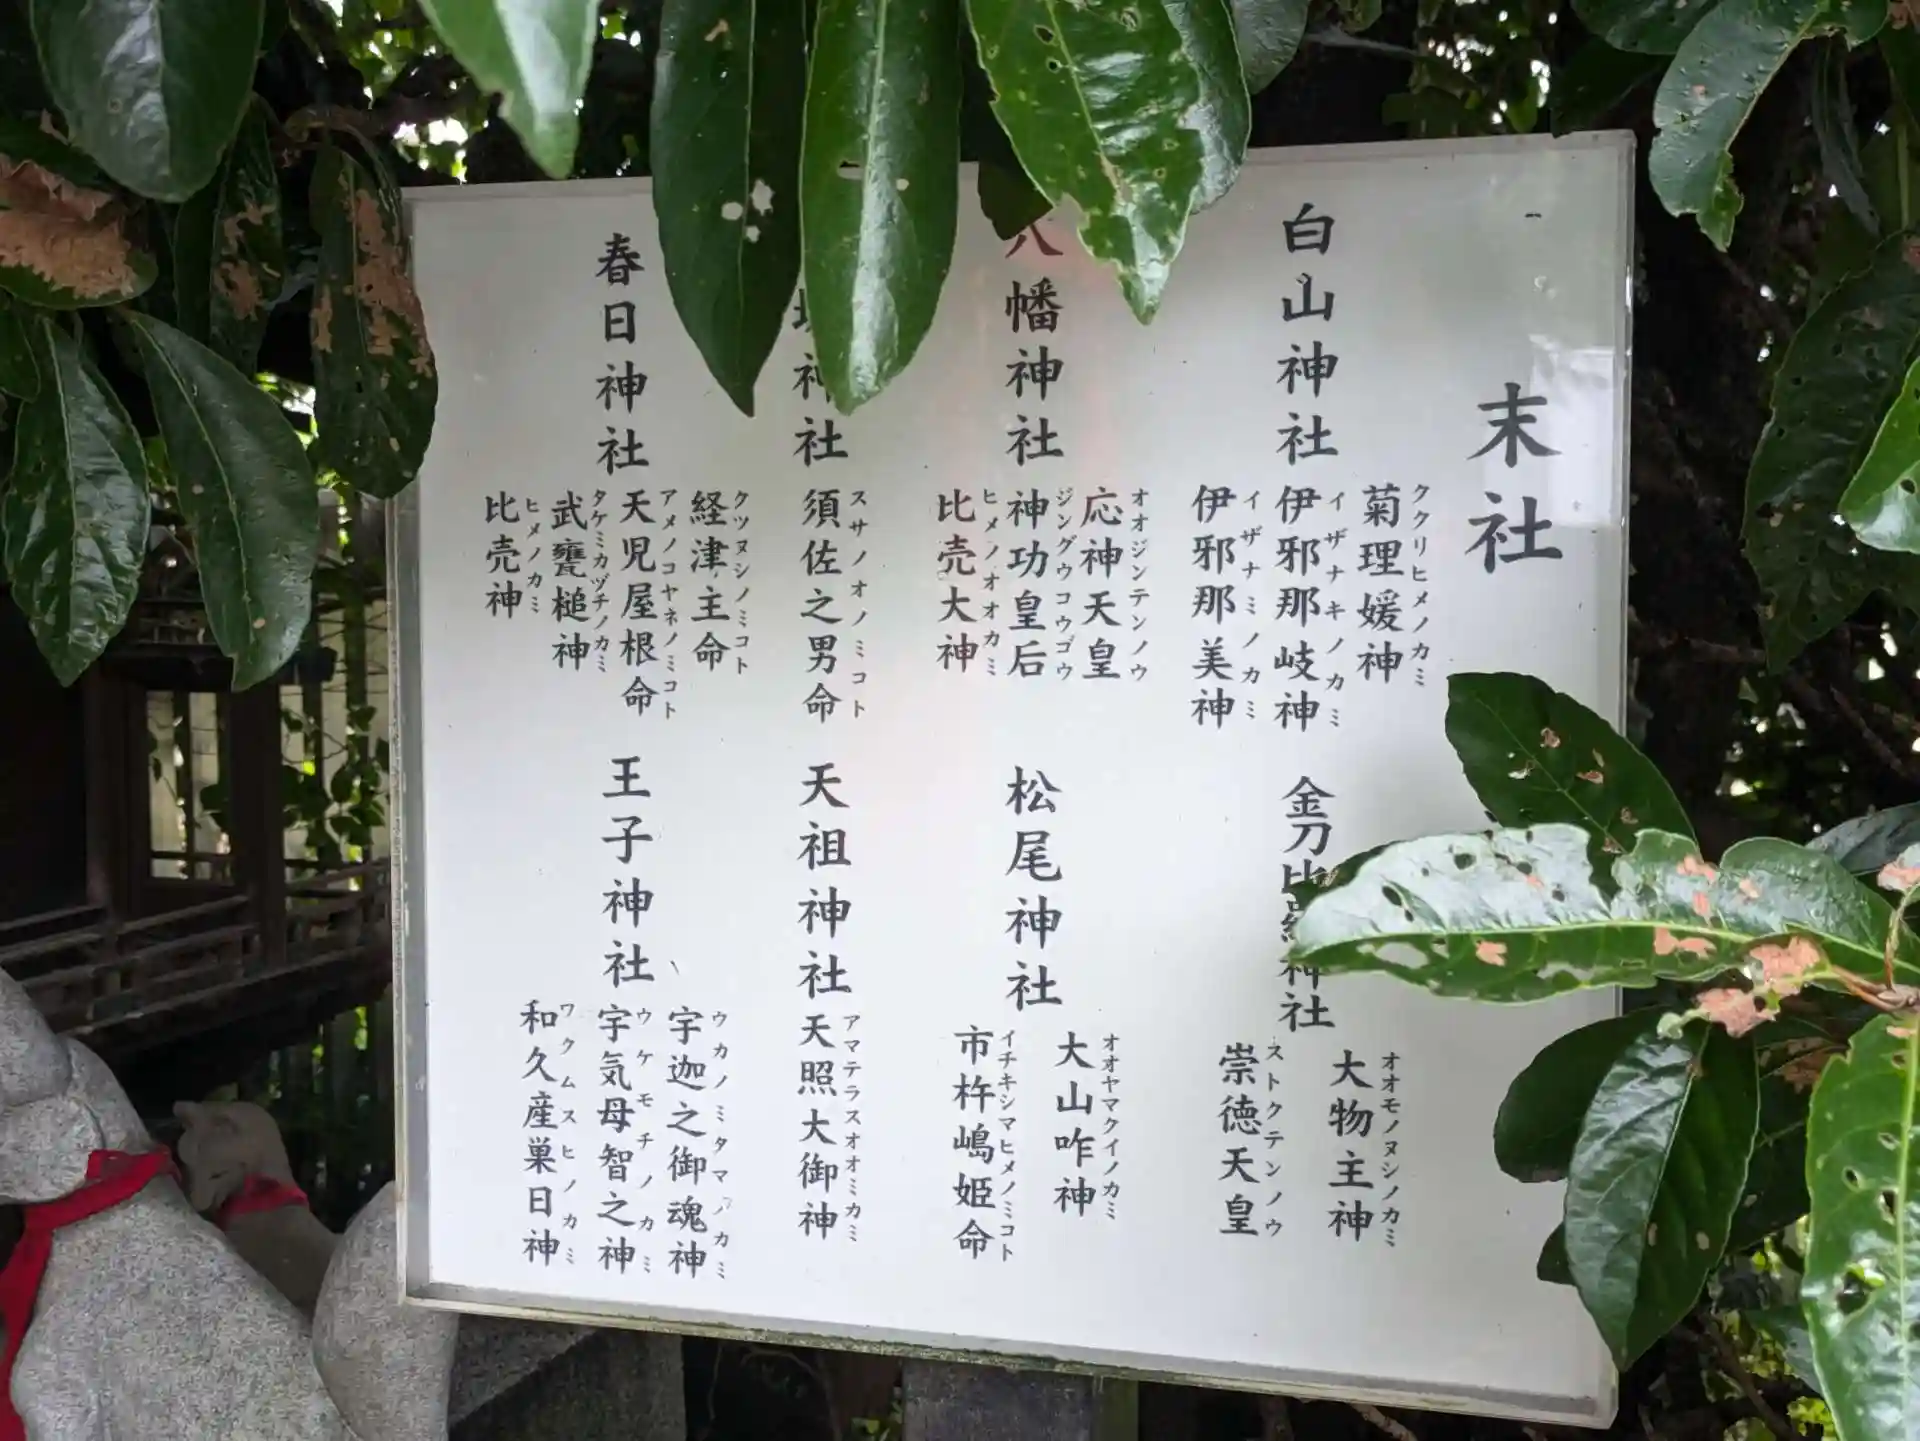 末社
白山神社
ククリヒメノカミ
菊理媛神
イザナキノカミ
伊邪那岐神
イザナミノカミ
伊邪那美神
金刀比羅神社
オオモノヌシノカミ
大物主神
ストクテンノウ
崇徳天皇
八幡神社
オオジンテンノウ
応神天皇
ジングウコウゴウ
神功皇后
ヒメノオオカミ
比売大神
松尾神社
オオヤマクイノカミ
大山咋神
イチキシマヒメノミコト
市杵嶋姫命
神社
スサノオノミコト
須佐之男命
天祖神社
アマテラスオオミカミ
天照大御神
春日神社
クツヌシノミコト
経津主命
アメノコヤネノミコト
天児屋根命
タケミカヅチノカミ
武甕槌神
ヒメノカミ
比売神
王子神社
ウカノミタマノカミ
宇迦之御魂神
ウケモチノカミ
宇気母智之神
ワクムスヒノカミ
和久産巣日神